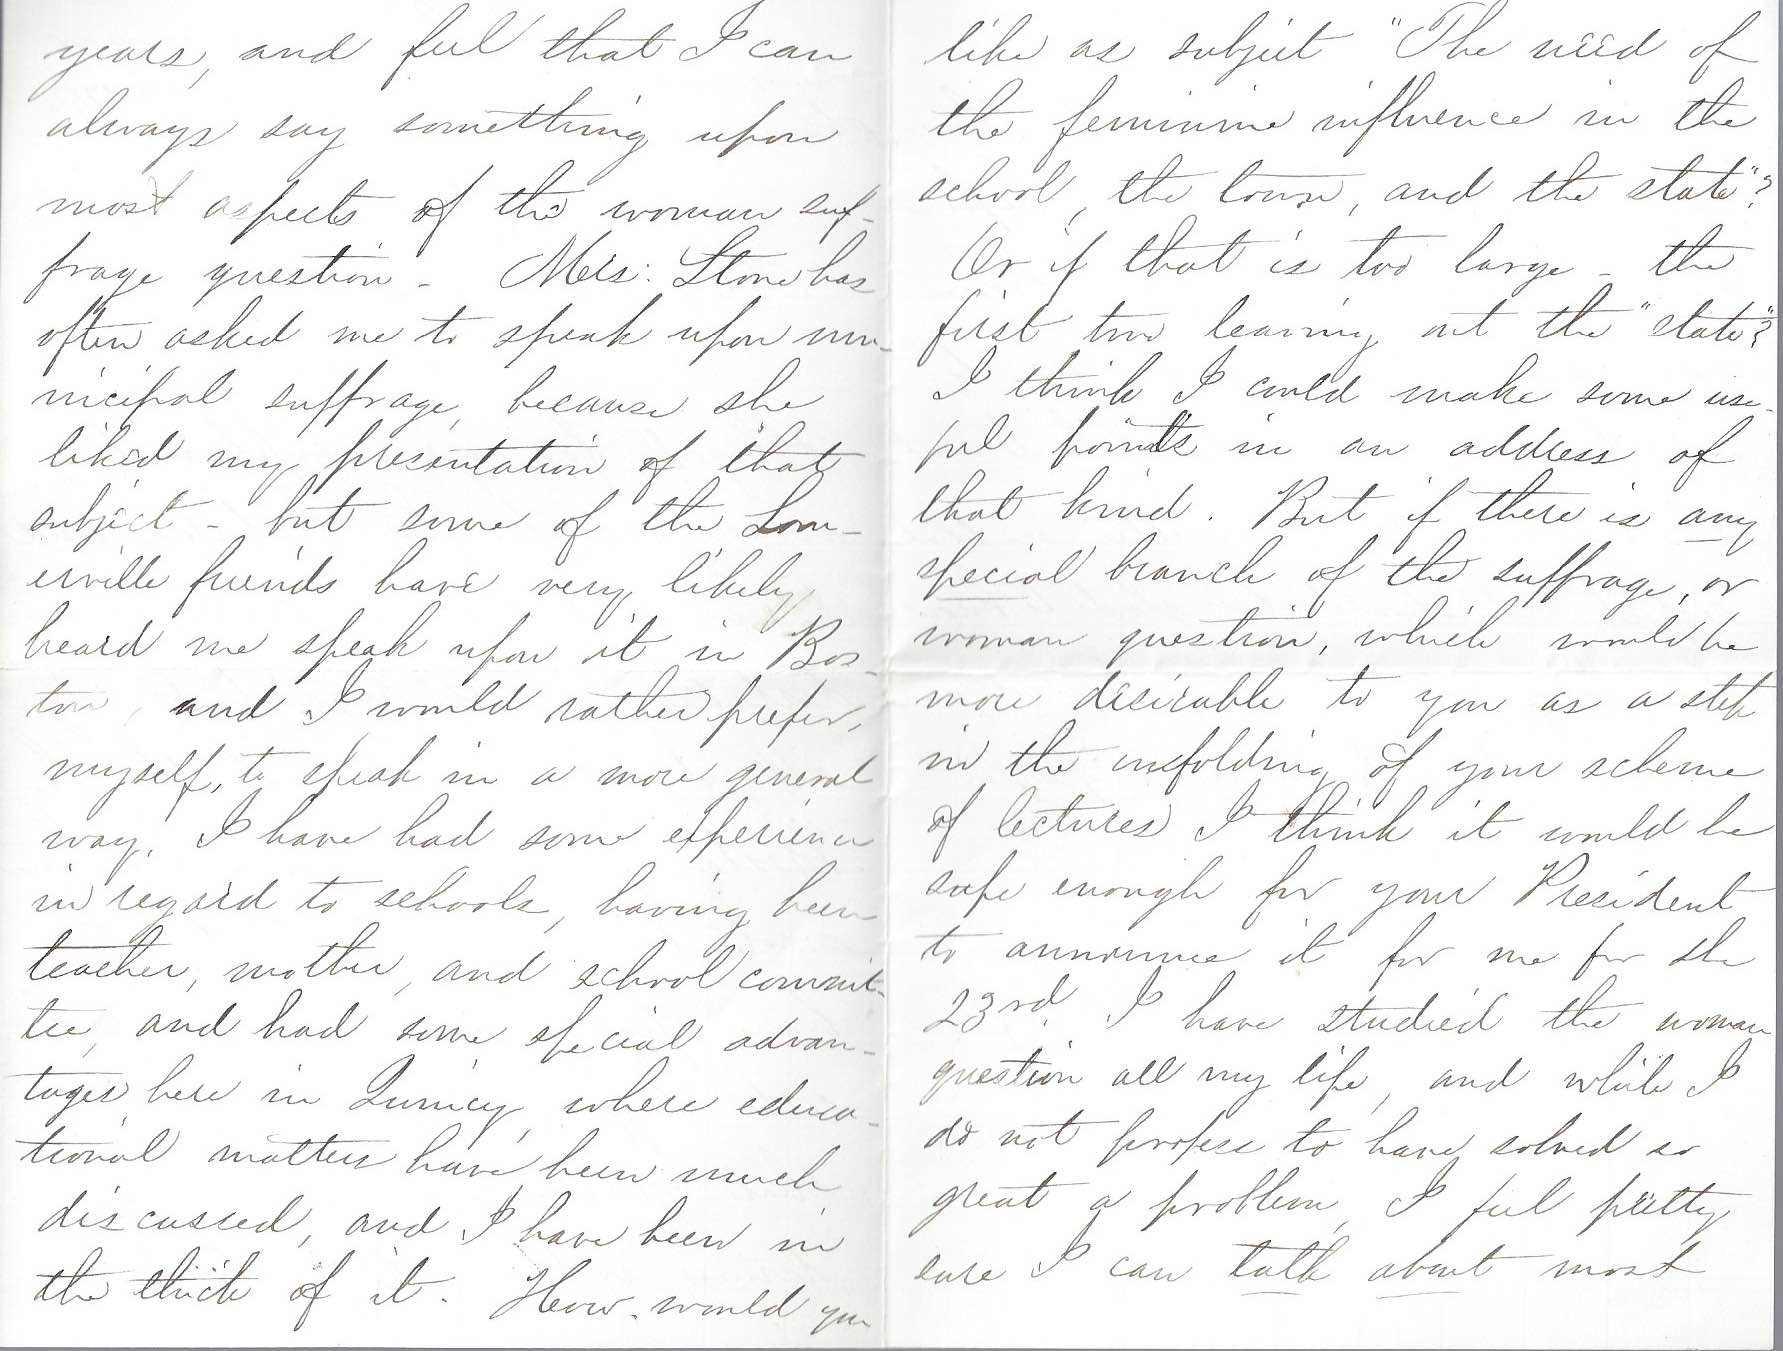 years, and feel that I can
always say something upon
most aspects of the woman suf-
frage question - Mrs. Stone has
often asked me to speak upon mu-
nicipal suffrage, because she
liked my presentation of that
subject - but some of the Som-
erville friends have very likely
heard me speak upon it in Bos-
ton, and I would rather prefer,
myself, to speak in a more general
way. I have had some experience
in regard to schools, having been
teacher, mother, and school commit-
tee, and had some special advan-
tages here in Quincy, where educa-
tional matters have been much
discussed, and I have been in
the thick of it. How would you
like as subject "The need of
the feminine influence in the
school, the town, and the state"?
Or if that is too large - the
first two leaving out the "state"?
I think I could make some use-
ful points in an address of
that kind. But if there is any
special branch of the suffrage, or
woman question, which would be
more desirable to you as a step
in the unfolding of your scheme
of lectures I think it would be
safe enough for your President
to announce it for me for the
23rd. I have studied the woman
question all my life, and while I
do not profess to have solved so
great a problem, I feel pretty
sure I can talk about most